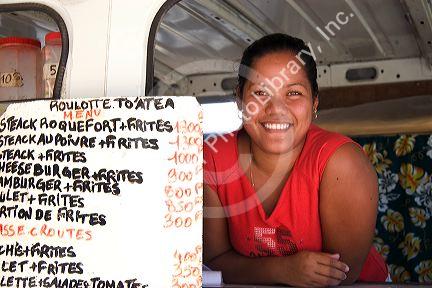 10F
ROULOTTE TO'ATEA
MENU
STEACK ROQUEFORT+FRITES 1300
STEACK AU POIVRE +FRITES
STEACK +FRITES 1000
CHEESEBURGER+FRITES 900
HAMBURGER+FRITES 800
POULET+FRITES 850
PORTION DE FRITES 300F
CASSE CROUTES
HACHIS+FRITES 400
POULET+FRITES 350
OMELETTE+SALADE+TOMATES 300
PhotographersLibrary.Inc